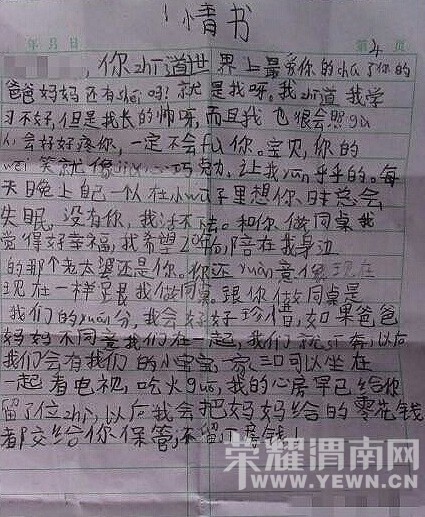 情书
年 月 日 第 页
你zhī道世界上最爱你的chú了你的
爸爸妈妈还有shéi吗!就是我呀。我zhī道我学
习不好,但是我长的帅呀,而且我也很会照gù
人,会好好疼你,一定不会fù你。宝贝,你的
wēi笑就像jiù心巧克力,让我nuǎn乎乎的。每
天晚上自己一以在小wū子里想你时总会
失眠,没有你,我活不
觉得好幸福,我希望20年后,陪在我身边
的那个老太婆还是你。你还yuàn意像现在
现在一样是跟我做同桌。跟你做同桌是
我们的yuán分,我会好好珍惜,如果爸爸
妈妈不同意我们在一起,我们就sī奔,以后
我们会有我们的小宝宝,一家三口可以坐在
一起看电视,吃火guō,我的心房早已给你
留了位zhì,以后我会把妈妈给的零花钱
都交给你保管,不留
荣耀渭南网
WWW.YEWN.CN